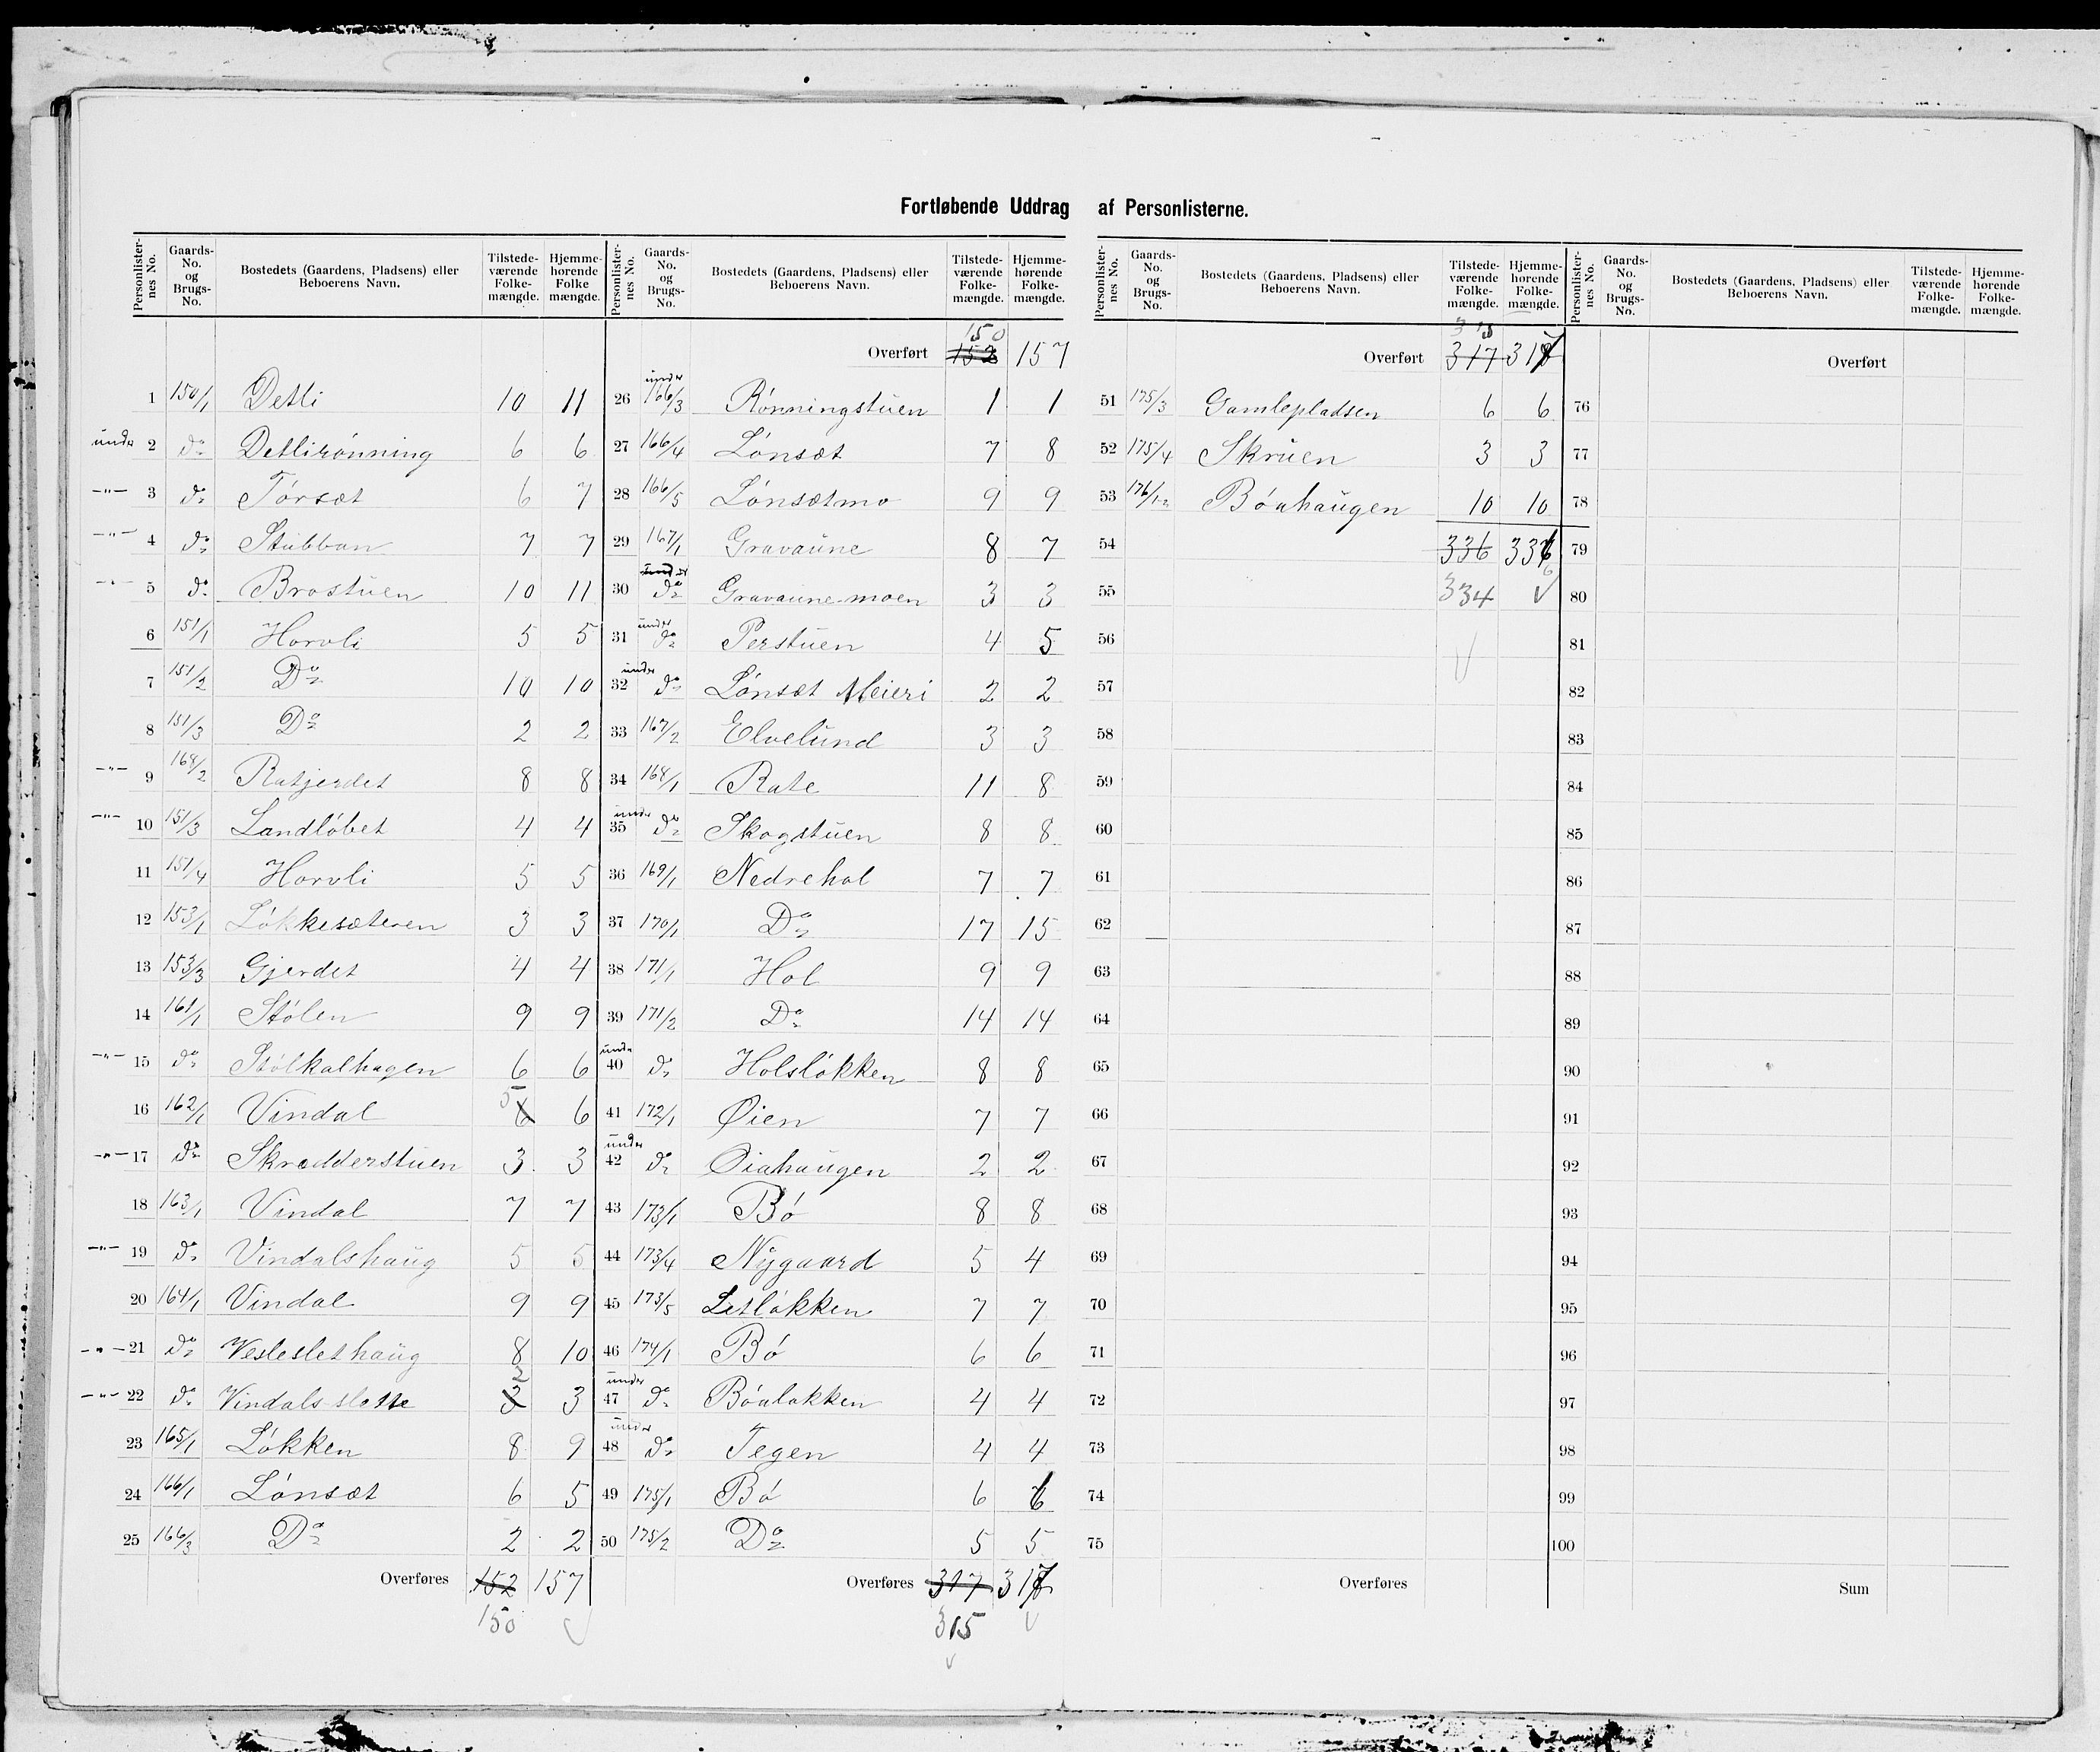 Fortløbende Uddrag af Personlisterne.
Personlister-nes No. | Gaards-No. og Brugs-No. | Bostedets (Gaardens, Pladsens) eller Beboerens Navn. | Tilstede-værende Folke-mængde. | Hjemme-hørende Folke mængde.
1 150/1 Detli 10 11
unde 2 do Detlirønning 6 6
-"- 3 do Tørsæt 6 7
-"- 4 do Stubban 7 7
-"- 5 do Brostuen 10 11
6 151/1 Horvli 5 5
7 151/2 Do 10 10
8 151/3 Do 2 2
-"- 9 168/2 Ratjerdet 8 8
-"- 10 151/3 Landløbet 4 4
11 151/4 Horvli 5 5
12 153/1 Løkkesæteren 3 3
13 153/3 Gjerdet 4 4
14 161/1 Stølen 9 9
-"- 15 do Stølkalhagen 6 6
16 162/1 Vindal 6 5 6
-"- 17 do Skradderstuen 3 3
18 163/1 Vindal 7 7
-"- 19 do Vindalshaug 5 5
20 164/1 Vindal 9 9
-"- 21 do Vesleslethaug 8 10
-"- 22 do Vindals slotte 3 2 3
23 165/1 Løkken 8 9
24 166/1 Lønsæt 6 5
25 166/3 Do 2 2
Overføres 152 157
150
Personlister-nes No. | Gaards-No. og Brugs-No. | Bostedets (Gaardens, Pladsens) eller Beboerens Navn. | Tilstede-værende Folke-mængde. | Hjemme-hørende Folke-mængde.
150
Overført 152 157
26 under 166/3 Rønningstuen 1 1
27 166/4 Lønsæt 7 8
28 166/5 Lønsætmo 9 9
29 167/1 Gravaune 8 7
30 under do Gravaune-moen 3 3
31 under do Perstuen 4 5
32 under do Lønsæt Meieri 2 2
33 167/2 Elvelund 3 3
34 168/1 Rate 11 8
35 under do Skogstuen 8 8
36 169/1 Nedrehol 7 7
37 170/1 Do 17 15
38 171/1 Hol 9 9
39 171/2 Do 14 14
40 unde do Holsløkken 8 8
41 172/1 Øien 7 7
42 under do Øiahaugen 2 2
43 173/1 Bø 8 8
44 173/4 Nygaard 5 4
45 173/5 Letløkken 7 7
46 174/1 Bø 6 6
47 under do Bøaløkken 4 4
48 under do Tegen 4 4
49 175/1 Bø 6 6
50 175/2 Do 5 5
Overføres 317 317
315
Personlister-nes No. | Gaards-No. og Brugs-No. | Bostedets (Gaardens, Pladsens) eller Beboerens Navn. | Tilstede-værende Folke-mængde. | Hjemme-hørende Folke-mængde.
315
Overført 317 317
51 175/3 Gamlepladsen 6 6
52 175/4 Skruen 3 3
53 176/1-2 Bøahaugen 10 10
54 336 336
55 334
56
57
58
59
60
61
62
63
64
65
66
67
68
69
70
71
72
73
74
75
Overføres
Personlister-nes No. | Gaards-No. og Brugs-No. | Bostedets (Gaardens, Pladsens) eller Beboerens Navn. | Tilstede-værende Folke-mængde. | Hjemme-hørende Folke-mængde.
Overført
76
77
78
79
80
81
82
83
84
85
86
87
88
89
90
91
92
93
94
95
96
97
98
99
100
Sum